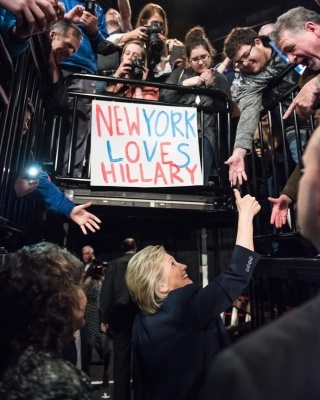 NEWYORK
LOVES
HILLARY